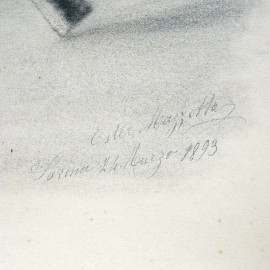 Ester Mazzotta
Parma 24 Marzo 1893